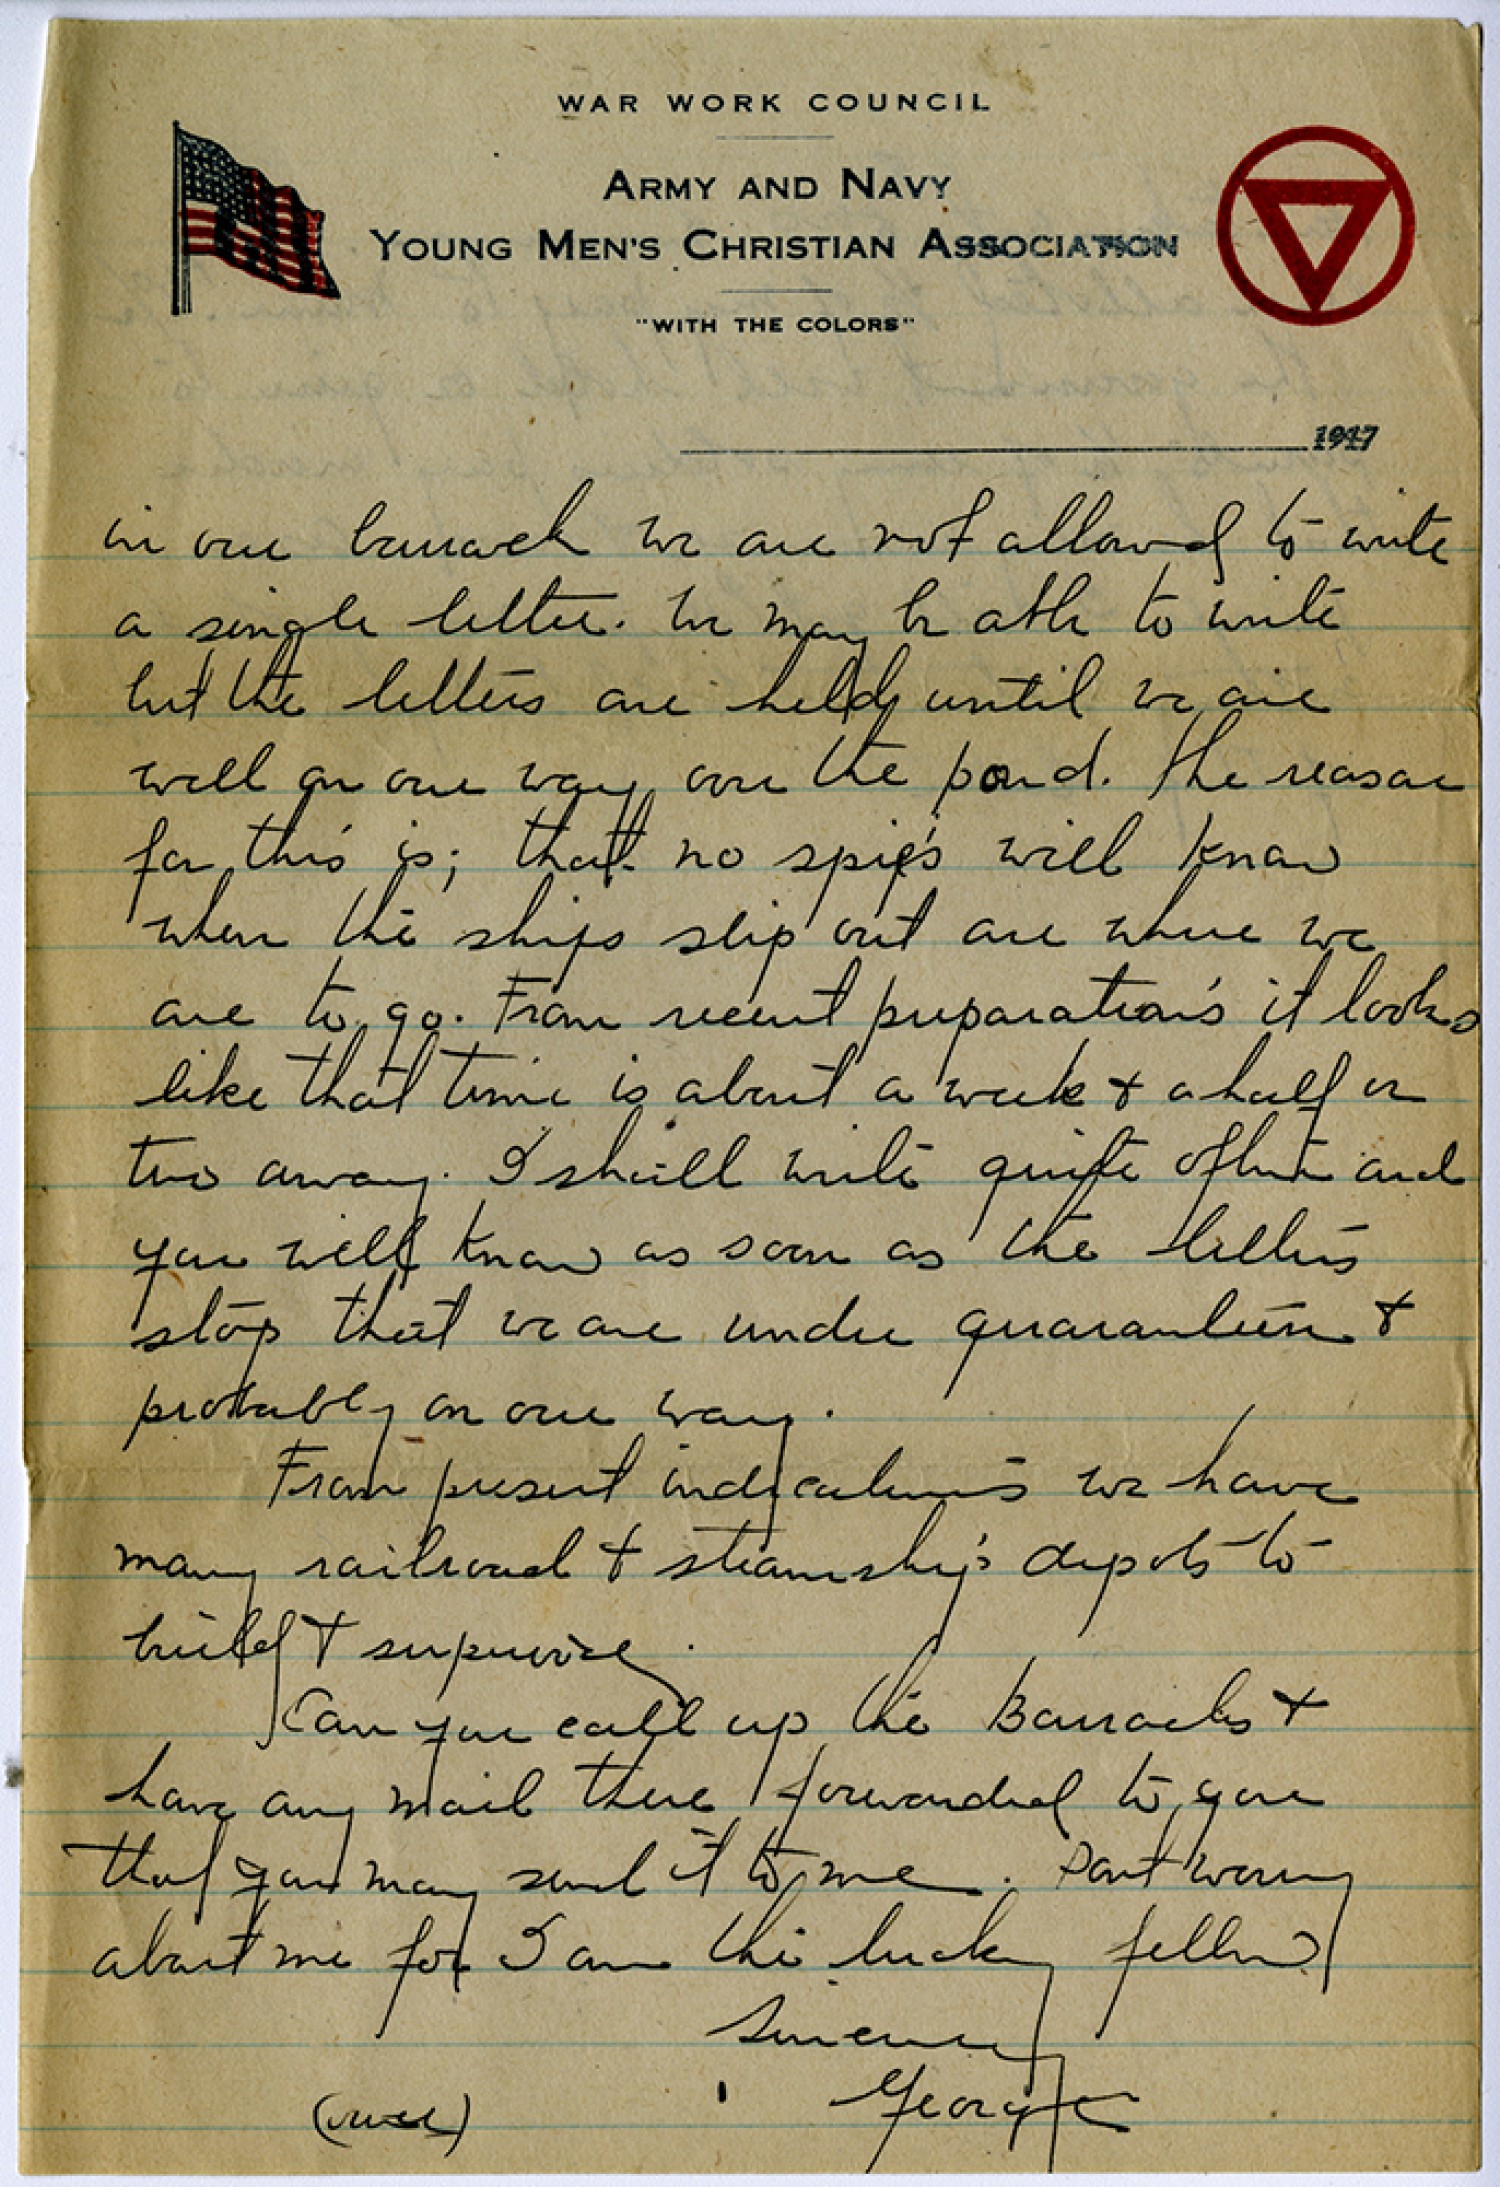 WAR WORK COUNCIL
ARMY AND NAVY
YOUNG MEN'S CHRISTIAN ASSOCIATION
"WITH THE COLORS"
1917
in our barrack we are not allowed to write
a single letter. We may be able to write
but the letters are held until we are
well on our way over the pond. The reason
for this is; that no spies will know
when the ships slip out are where we
are to go. From recent preparation's it looks
like that time is about a week & a half or
two away. I shall write quite often and
you will know as soon as the letters
stop that we are under quaranteen &
probably on our way.
From present indications we have
many railroad & steamship depots to
build & supervise.
Can you call up the Barracks &
have any mail there forwarded to you
that you may send it to me. Dont worry
about me for I am the lucky fellow.
Sincerely
George
(over)